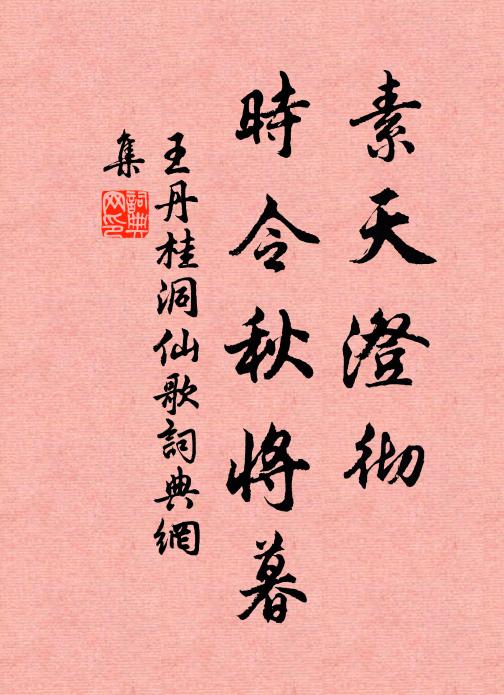 素天澄彻
時令秋將暮
王丹桂洞仙歌詞典網
集
詞典
网印